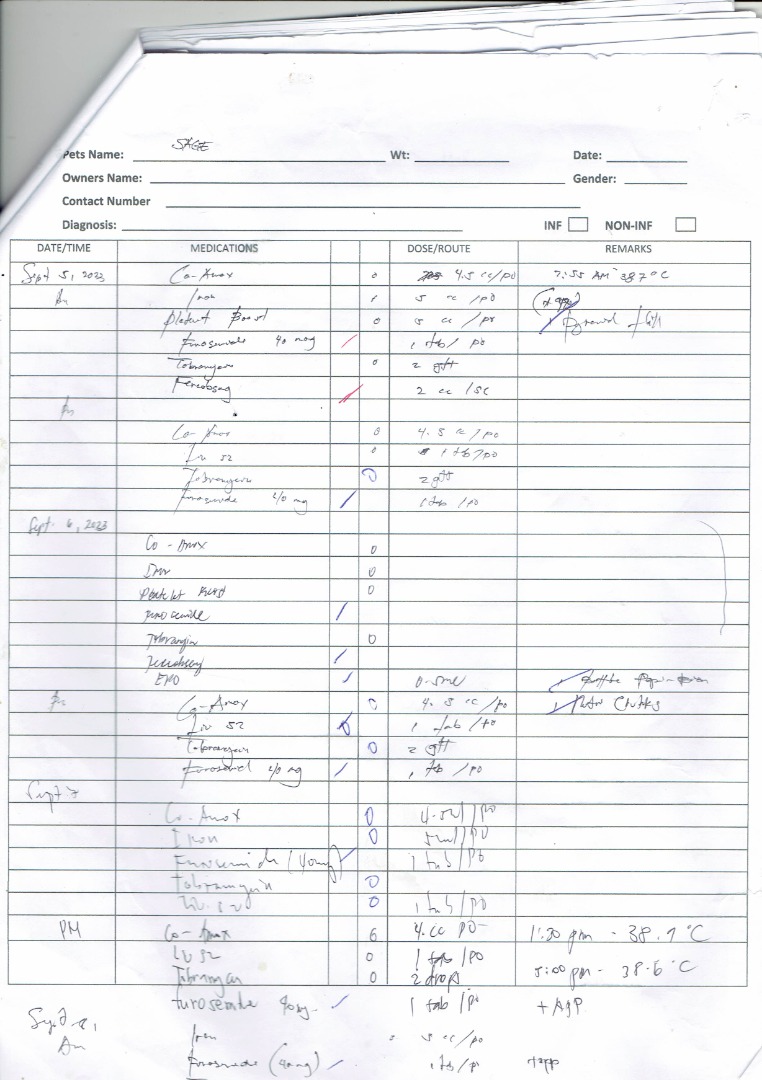 SAGE
Pets Name: Wt: Date:
Owners Name: Gender:
Contact Number
Diagnosis: INF NON-INF
DATE/TIME MEDICATIONS DOSE/ROUTE REMARKS
Sept 5, 2023 Co-Amox 0 4.5 cc/po 7:55 AM 38.7°C
Am Iron 5 cc /po
Platelet Boost 0 5 cc / po
Furosemide 40 mg / 1 tab/ po
Tobramycin 0 2 gtt
/ 2 cc /SC
Co-Amox 0 4.5 cc/po
Liv 52 0 1 tab/po
Tobramycin 0 2 gtt
Furosemide 40 mg / 1 tab /po
Sept. 6, 2023
Co-Amox 0
Iron 0
Platelet Boost 0
Furosemide /
Tobramycin 0
/
EPO / 0.5ml
Co-Amox 0 4.5 cc/po
Liv 52 1 tab /po
Tobramycin 0 2 gtt
40 mg / 1 tab /po
Sept 7
Co-Amox 0 4.5ml/po
Iron 0 5ml/po
Furosemide (40mg) / 1 tab/po
Tobramycin 0
Liv. 52 0 1 tab/po
PM Co-Amox 0 4.cc PO 1:30 pm - 38.9°C
LV 52 0 1 tab/po
Tobramycin 0 2 drops 5:00 pm - 38.6°C
Furosemide 40mg- / 1 tab /po + App
Sept 8,
Am Iron 5 cc/po
Furosemide (40mg) / 1 tab/p +app